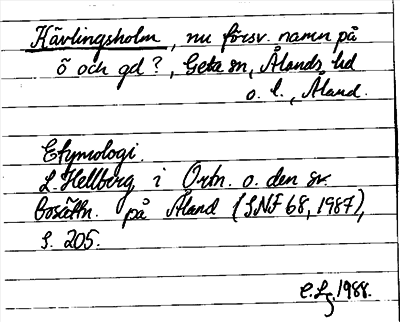 Kävlingsholm, nu försv. namn på
ö och gd?, Geta sn, Ålands hd
o. l., Åland.
Etymologi.
L. Hellberg i Ortn. o. den sv.
bosättn. på Åland (SNF 68, 1987),
s. 205.
C. Lg. 1988.